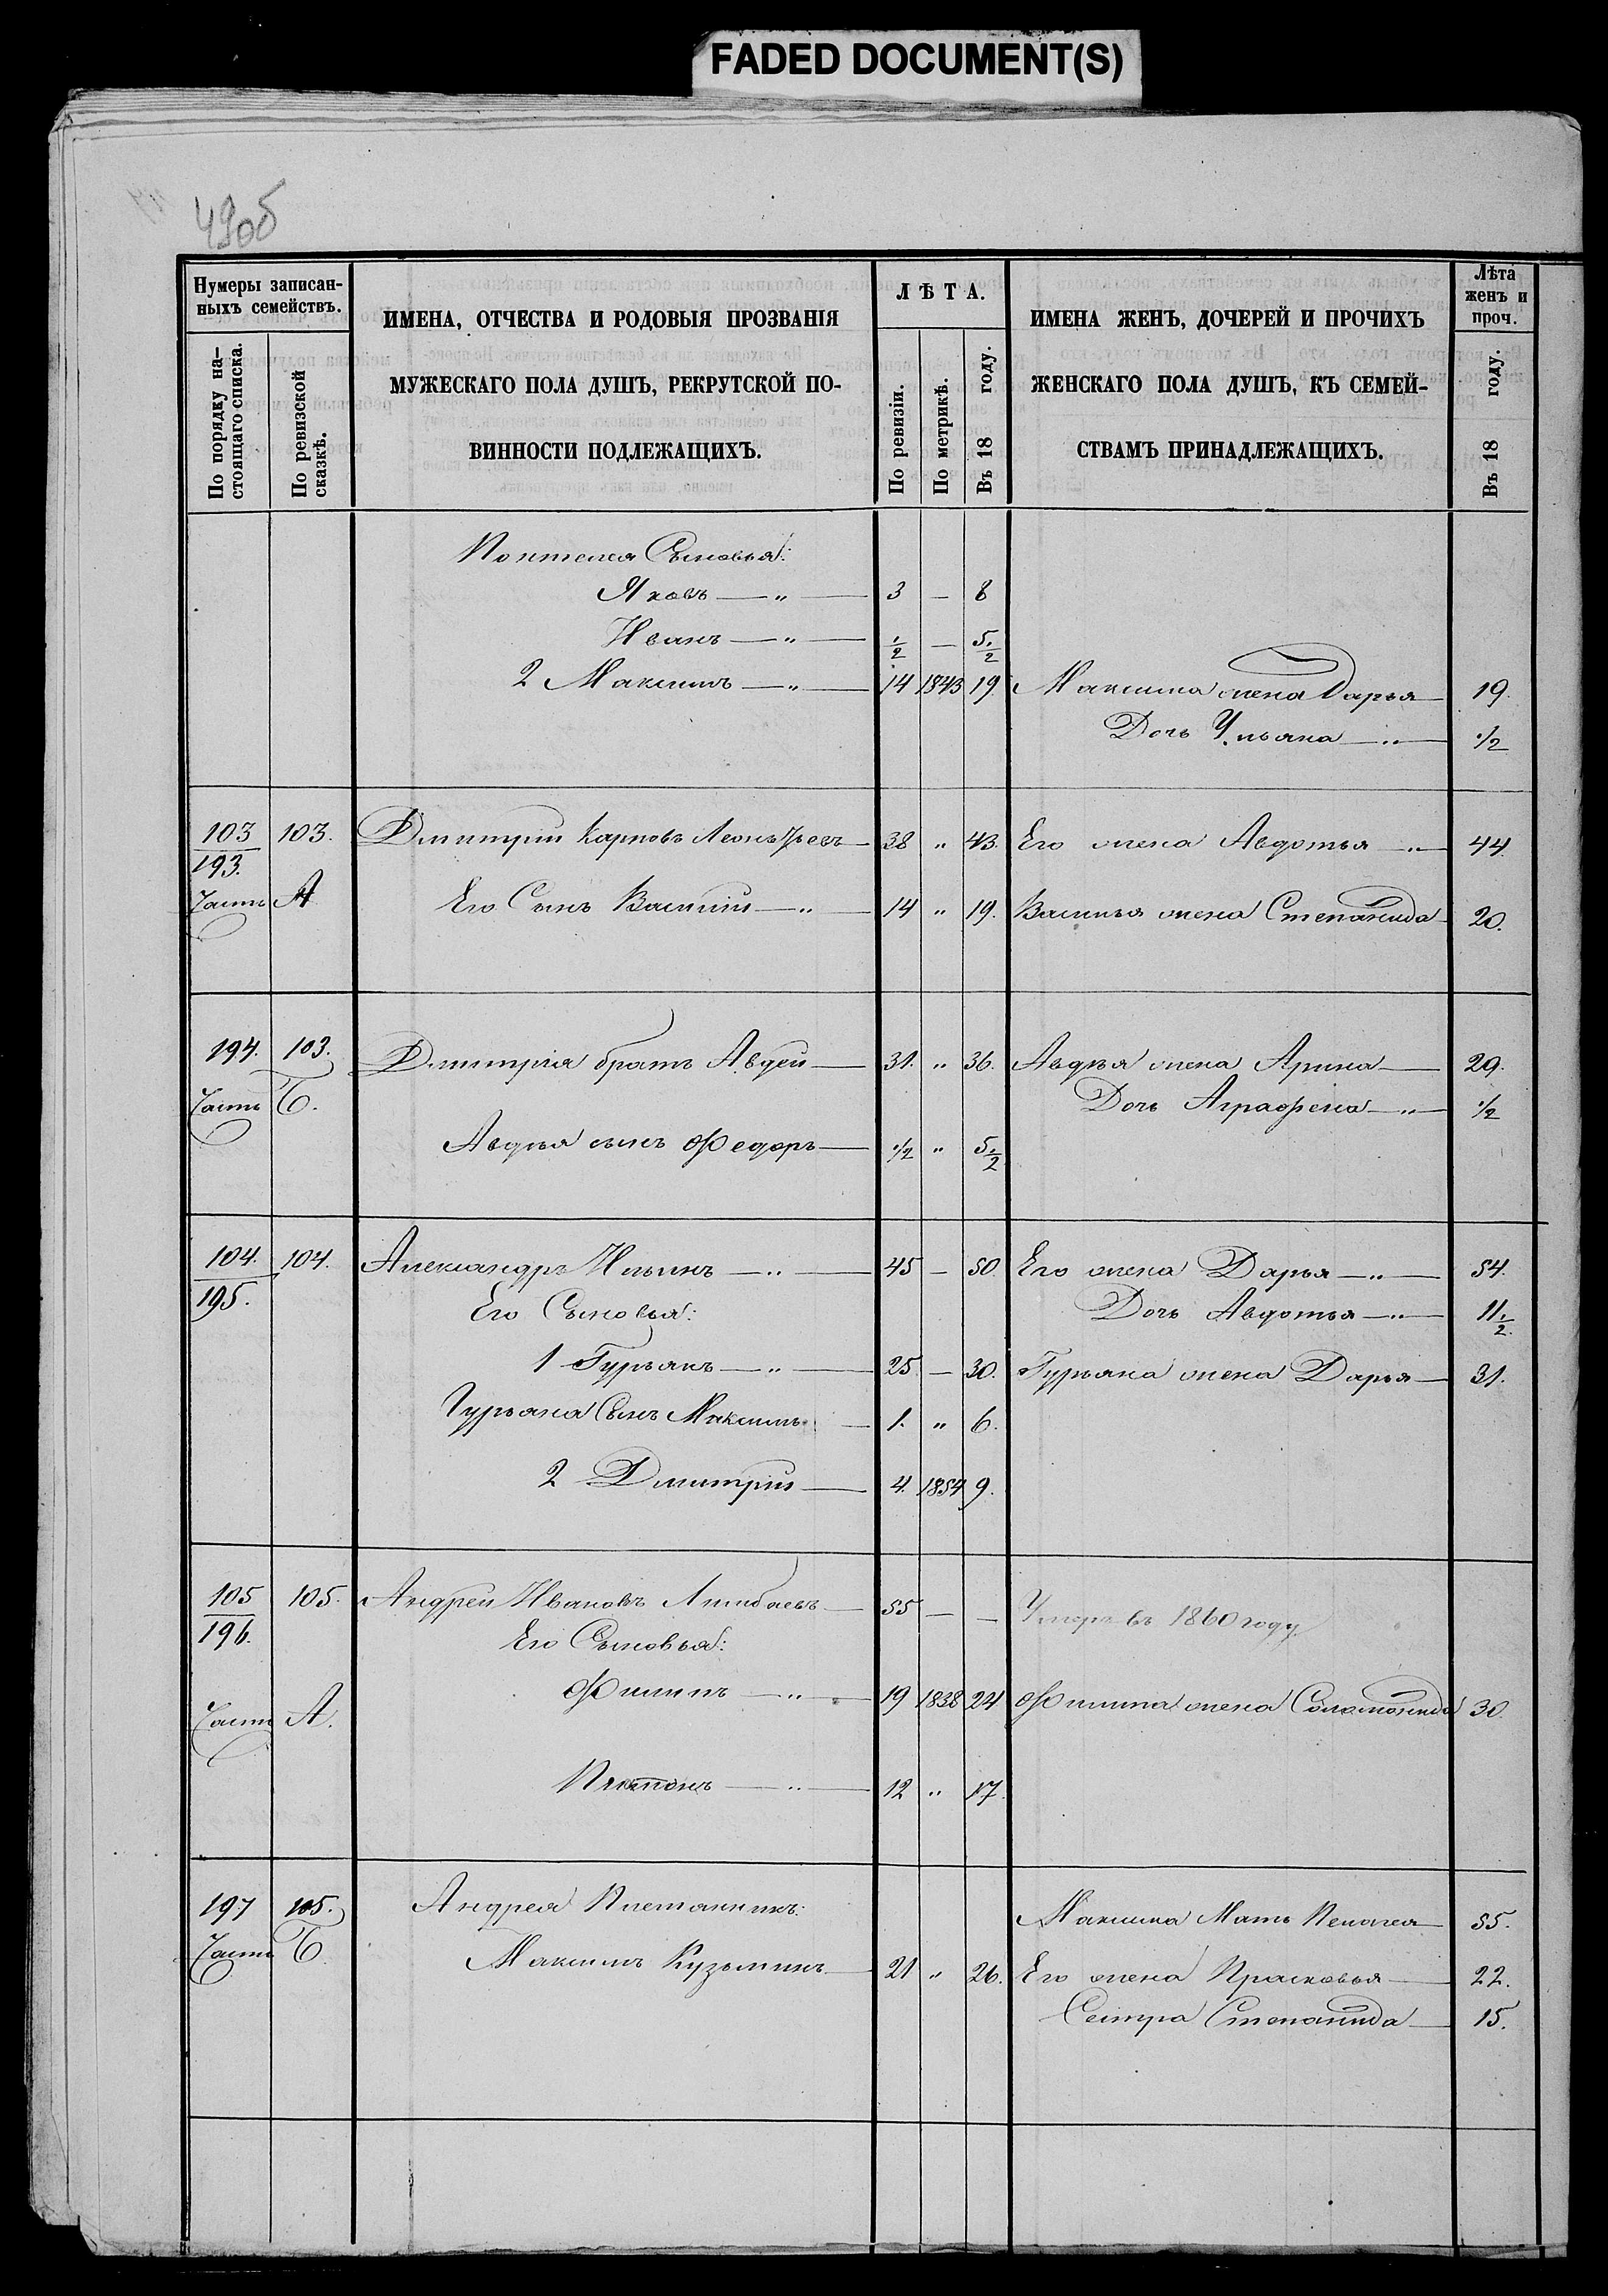 FADED DOCUMENT(S)
49об
Нумеры записан-
ныхъ семействъ.
По порядку на-
стоящаго списка.
По ревизской
сказкѣ.
ИМЕНА, ОТЧЕСТВА И РОДОВЫЯ ПРОЗВАНІЯ
МУЖЕСКАГО ПОЛА ДУШЪ, РЕКРУТСКОЙ ПО-
ВИННОСТИ ПОДЛЕЖАЩИХЪ.
ЛѢТА.
По ревизіи.
По метрикѣ.
Въ 18 году.
ИМЕНА ЖЕНЪ, ДОЧЕРЕЙ И ПРОЧИХЪ
ЖЕНСКАГО ПОЛА ДУШЪ, КЪ СЕМЕЙ-
СТВАМЪ ПРИНАДЛЕЖАЩИХЪ.
Лѣта
женъ и
проч.
Въ 18 году.
Сыновья:
Яковъ — „ — 3 — 8
Иванъ — „ — 1/2 — 5 1/2
2 Максимъ — „ — 14 1843 19 Максима жена Дарья — 19.
Дочь Ульяна — „ — 1/2
103/193. 103. Дмитрій Карповъ — 38 „ 43. Его жена Авдотья — „ — 44.
Часть А Его Сынъ Василій — „ — 14 „ 19. Василья жена Степанида — 20.
194. 103. Дмитрія братъ Авдей — 31. „ 36. Авдѣя жена Арина — 29.
Часть Б. Дочь Аграфена — „ — 1/2
Авдѣя сынъ Федоръ — 1/2 „ 5 1/2
104./195. 104. Александръ Ильинъ — „ — 45 — 50. Его жена Дарья — „ — 54.
Его Сыновья: Дочь Авдотья — „ — 11 1/2
1 Гурьянъ — „ — 25 — 30. Гурьяна жена Дарья — 31.
Гурьяна Сынъ Максимъ — 1. „ 6.
2 Дмитрій — 4. 1854 9.
105/196. 105. Андрей Ивановъ — 55 — — Умеръ въ 1860 году.
Его Сыновья:
Часть А. Филипъ — „ — 19 1838 24 Филипа жена Соломонида 30.
Платонъ — „ — 12 „ 17.
197 105. Андрея Племянникъ: Максима Мать Пелагея — 55.
Часть Б Максимъ Кузьминъ — 21 „ 26. Его жена Прасковья — 22.
Сестра Степанида — 15.